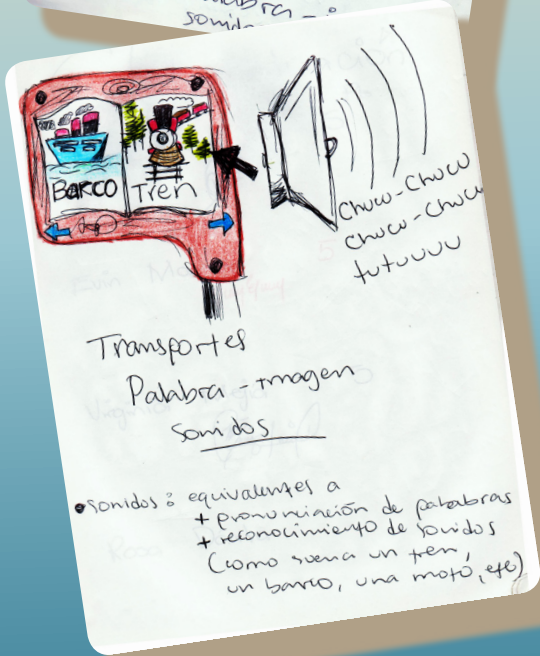 sonido
BARCO
Tren
Chucu-Chucu
chucu-chucu
tutuuuu
Transportes
Palabra - Imagen
sonidos
sonidos: equivalentes a
+ pronunciación de palabras
+ reconocimiento de sonidos
(como suena un tren,
un barco, una moto, etc)